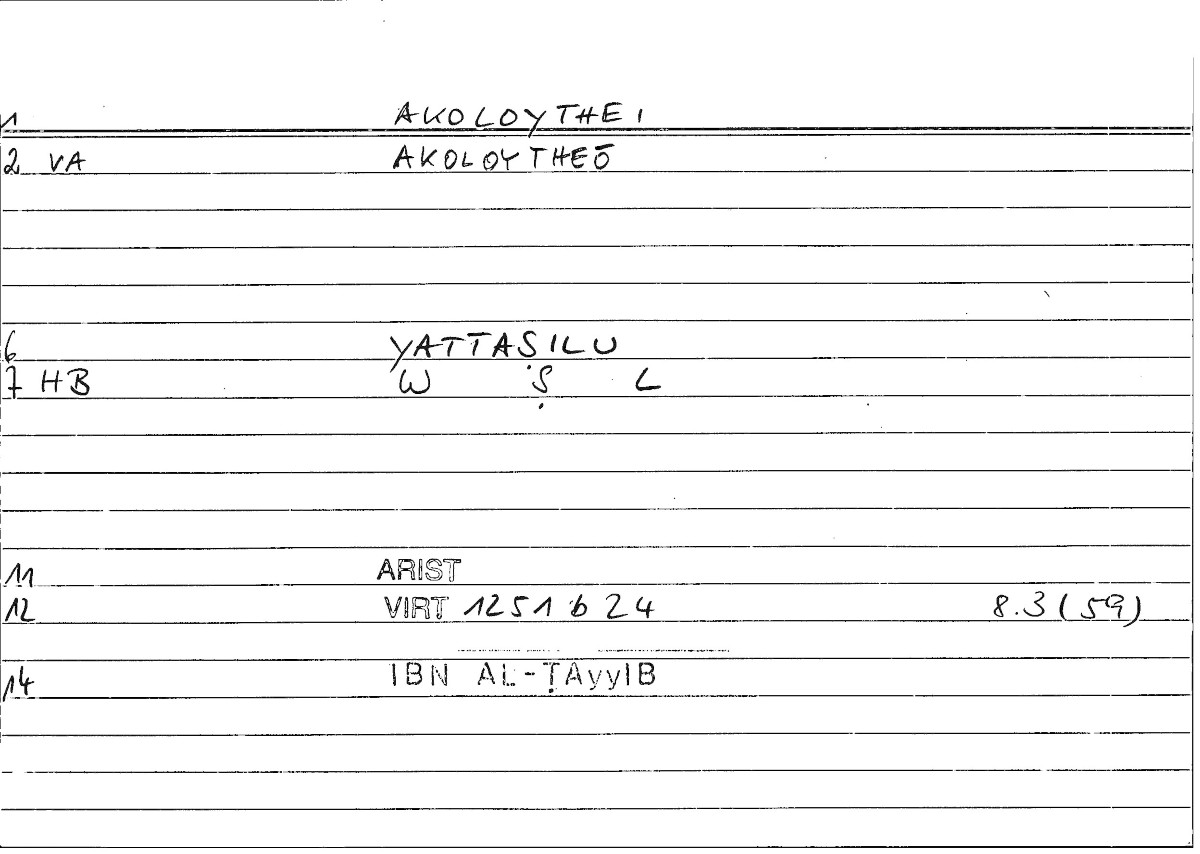 1 AKOLOYTHEI
2 VA AKOLOYTHEŌ
6 YATTAṢILU
7 HB W Ṣ L
11 ARIST
12 VIRT 1251 b 24 8.3 (59)
14 IBN AL-ṬAyyIB